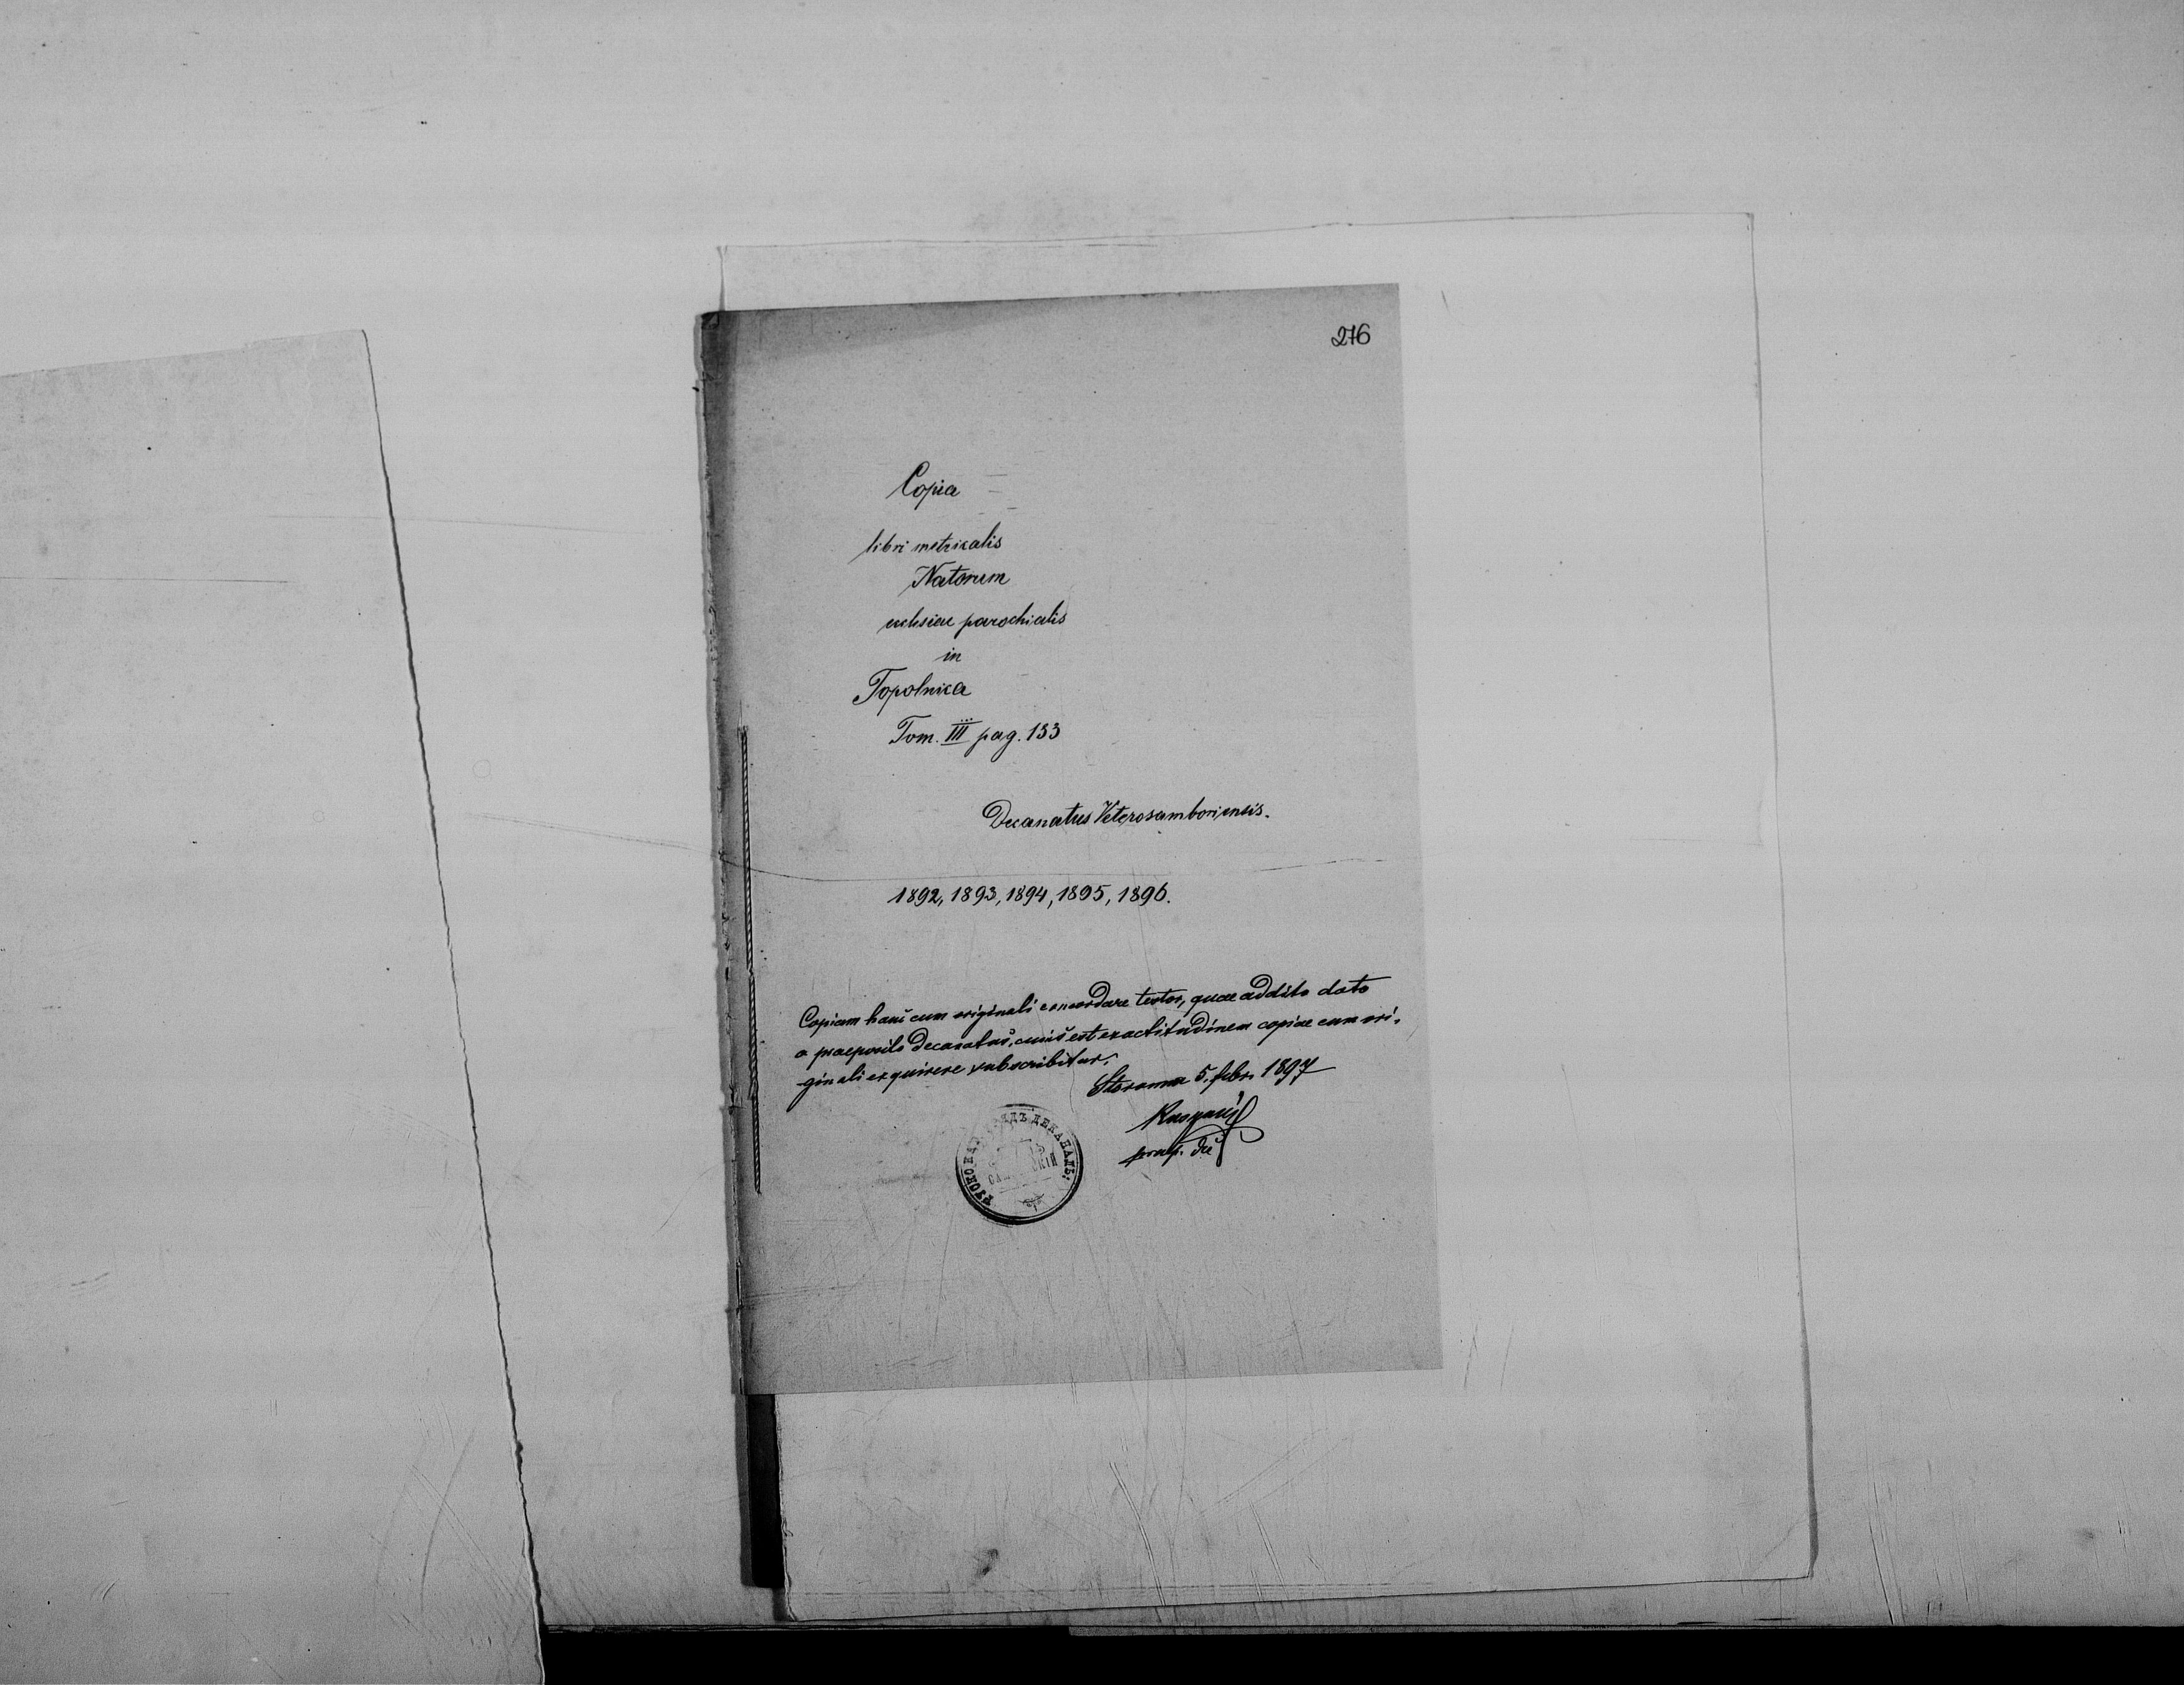 276
Copia
libri metricalis
Natorum
ecclesiae parochialis
in
Topolnica
Tom. III pag. 133
Decanatus Veterosamboriensis.
1892, 1893, 1894, 1895, 1896.
Copiam hanc cum originali concordare testor, quae addito dato
a praeposito decanatus, cuius est exactitudinem copiae cum ori-
ginali exquirere subscribitur.
5. febr. 1897
ДЕКАНАЛЬ